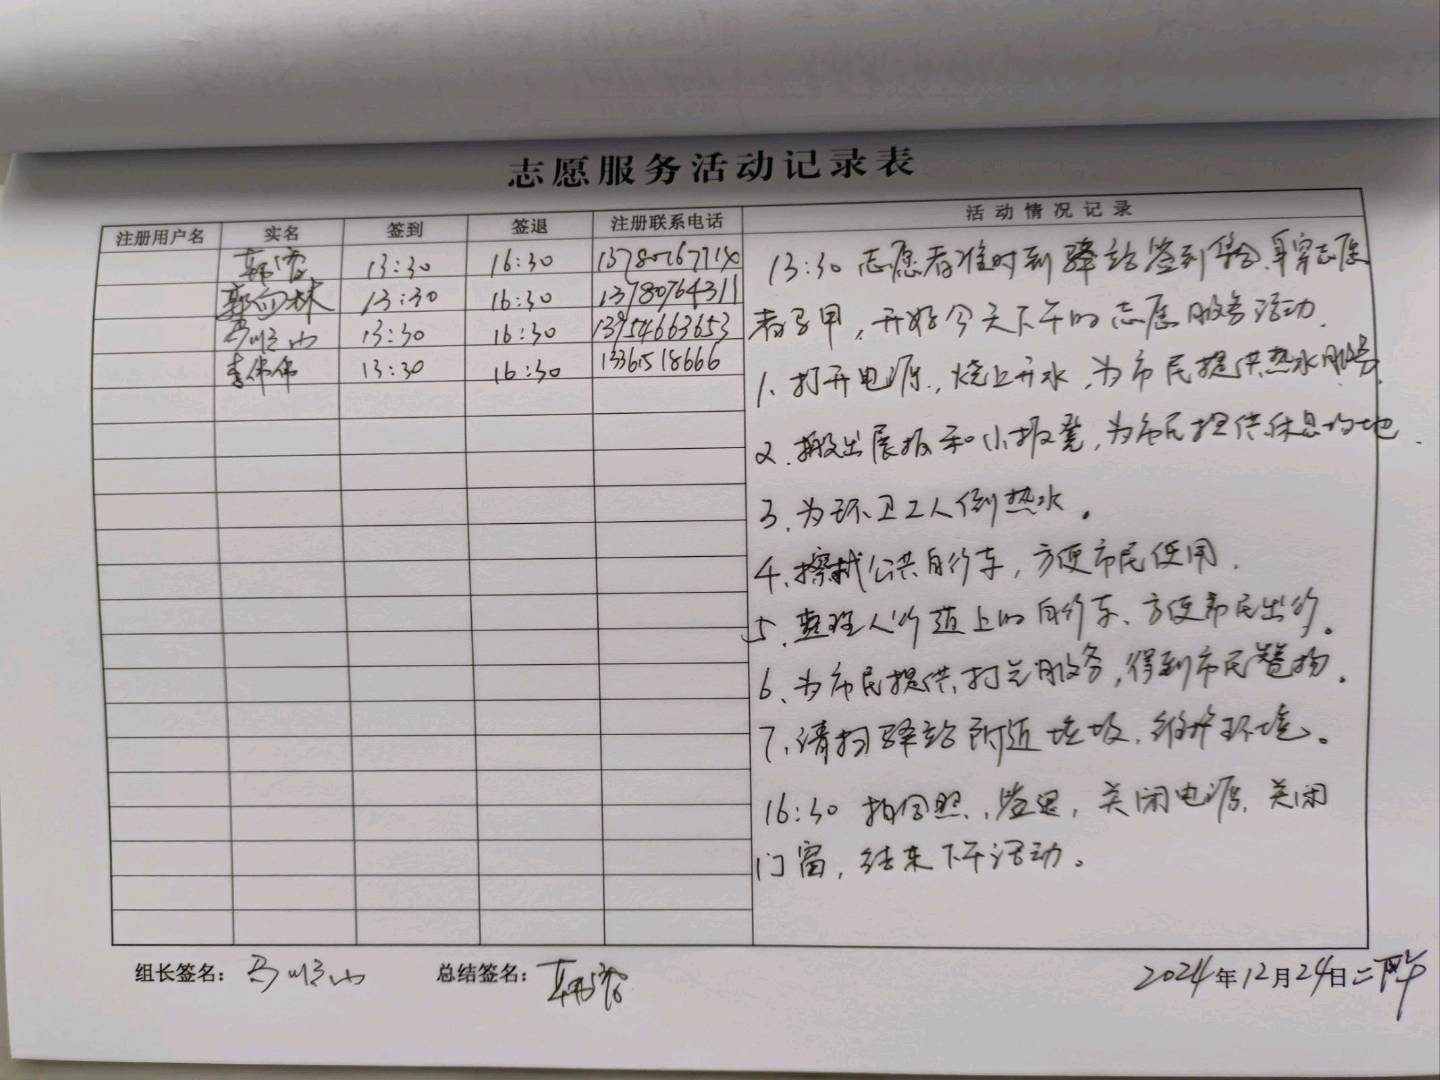 志愿服务活动记录表
注册用户名 实名 签到 签退 注册联系电话 活动情况记录
13:30 16:30 13780767714
13:30 16:30 13780764311
马顺山 13:30 16:30 13954663653
李伟伟 13:30 16:30 13361518666
13:30 志愿者准时到驿站签到集合,身穿志愿
者马甲,开始今天下午的志愿服务活动.
1、打开电源,烧上开水,为市民提供热水服务.
2、搬出展板和小板凳,为市民提供休息场地.
3、为环卫工人倒热水。
4、擦拭公共自行车,方便市民使用.
5、整理人行道上的自行车、方便市民出行。
6、为市民提供打气服务,得到市民赞扬.
7、清扫驿站附近垃圾,维护环境。
16:30 拍合照,签退,关闭电源,关闭
门窗,结束下午活动。
组长签名: 马顺山 总结签名:
2024年12月24日二下午